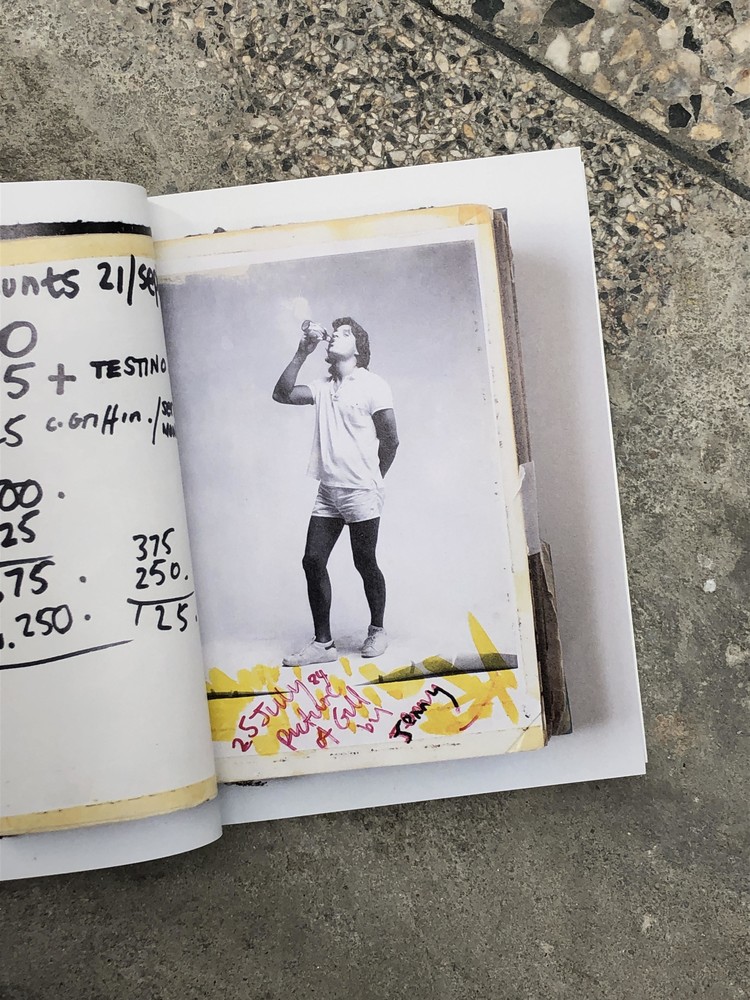 unts 21/Se
0
5 + TESTINO
.5 C. Griffin. /
00.
25
.75 .
.250.
375
250.
125.
25 July 84
Picture
of Gill
by
Jenny